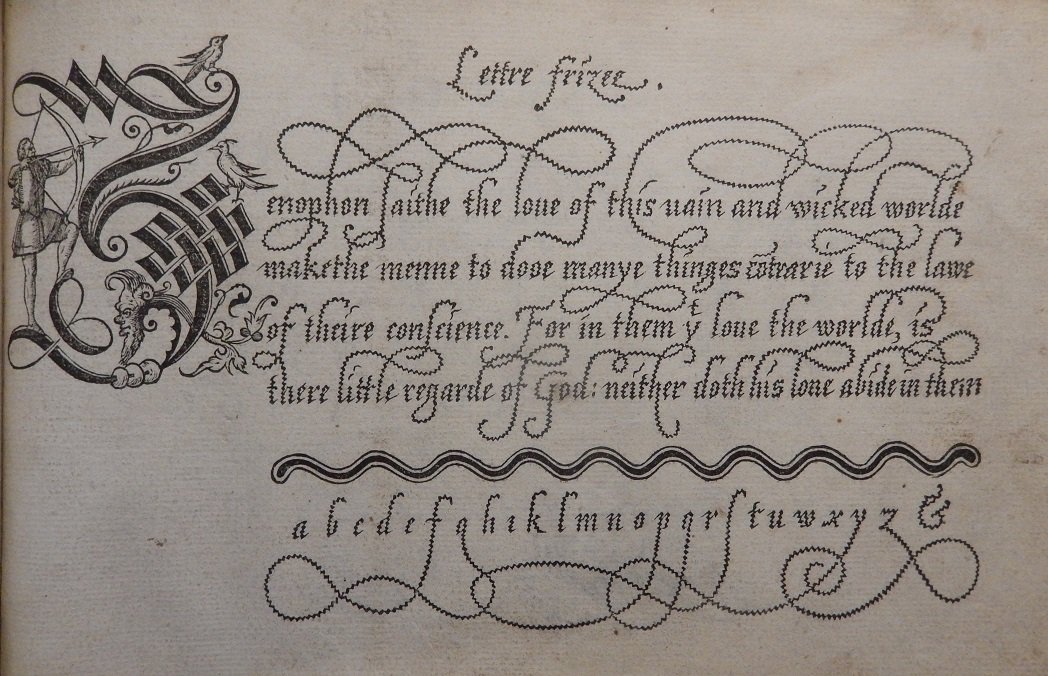 Lettre frizee.
Xenophon ſaithe the loue of this uain and wicked worlde
makethe menne to dooe manye thinges cõtrarie to the lawe
of theire conſcience. For in them yͭ loue the worlde, is
there little regarde of God: neither doth his loue abide in them
a b c d e f g h i k l m n o p q r ſ t u w x y z &